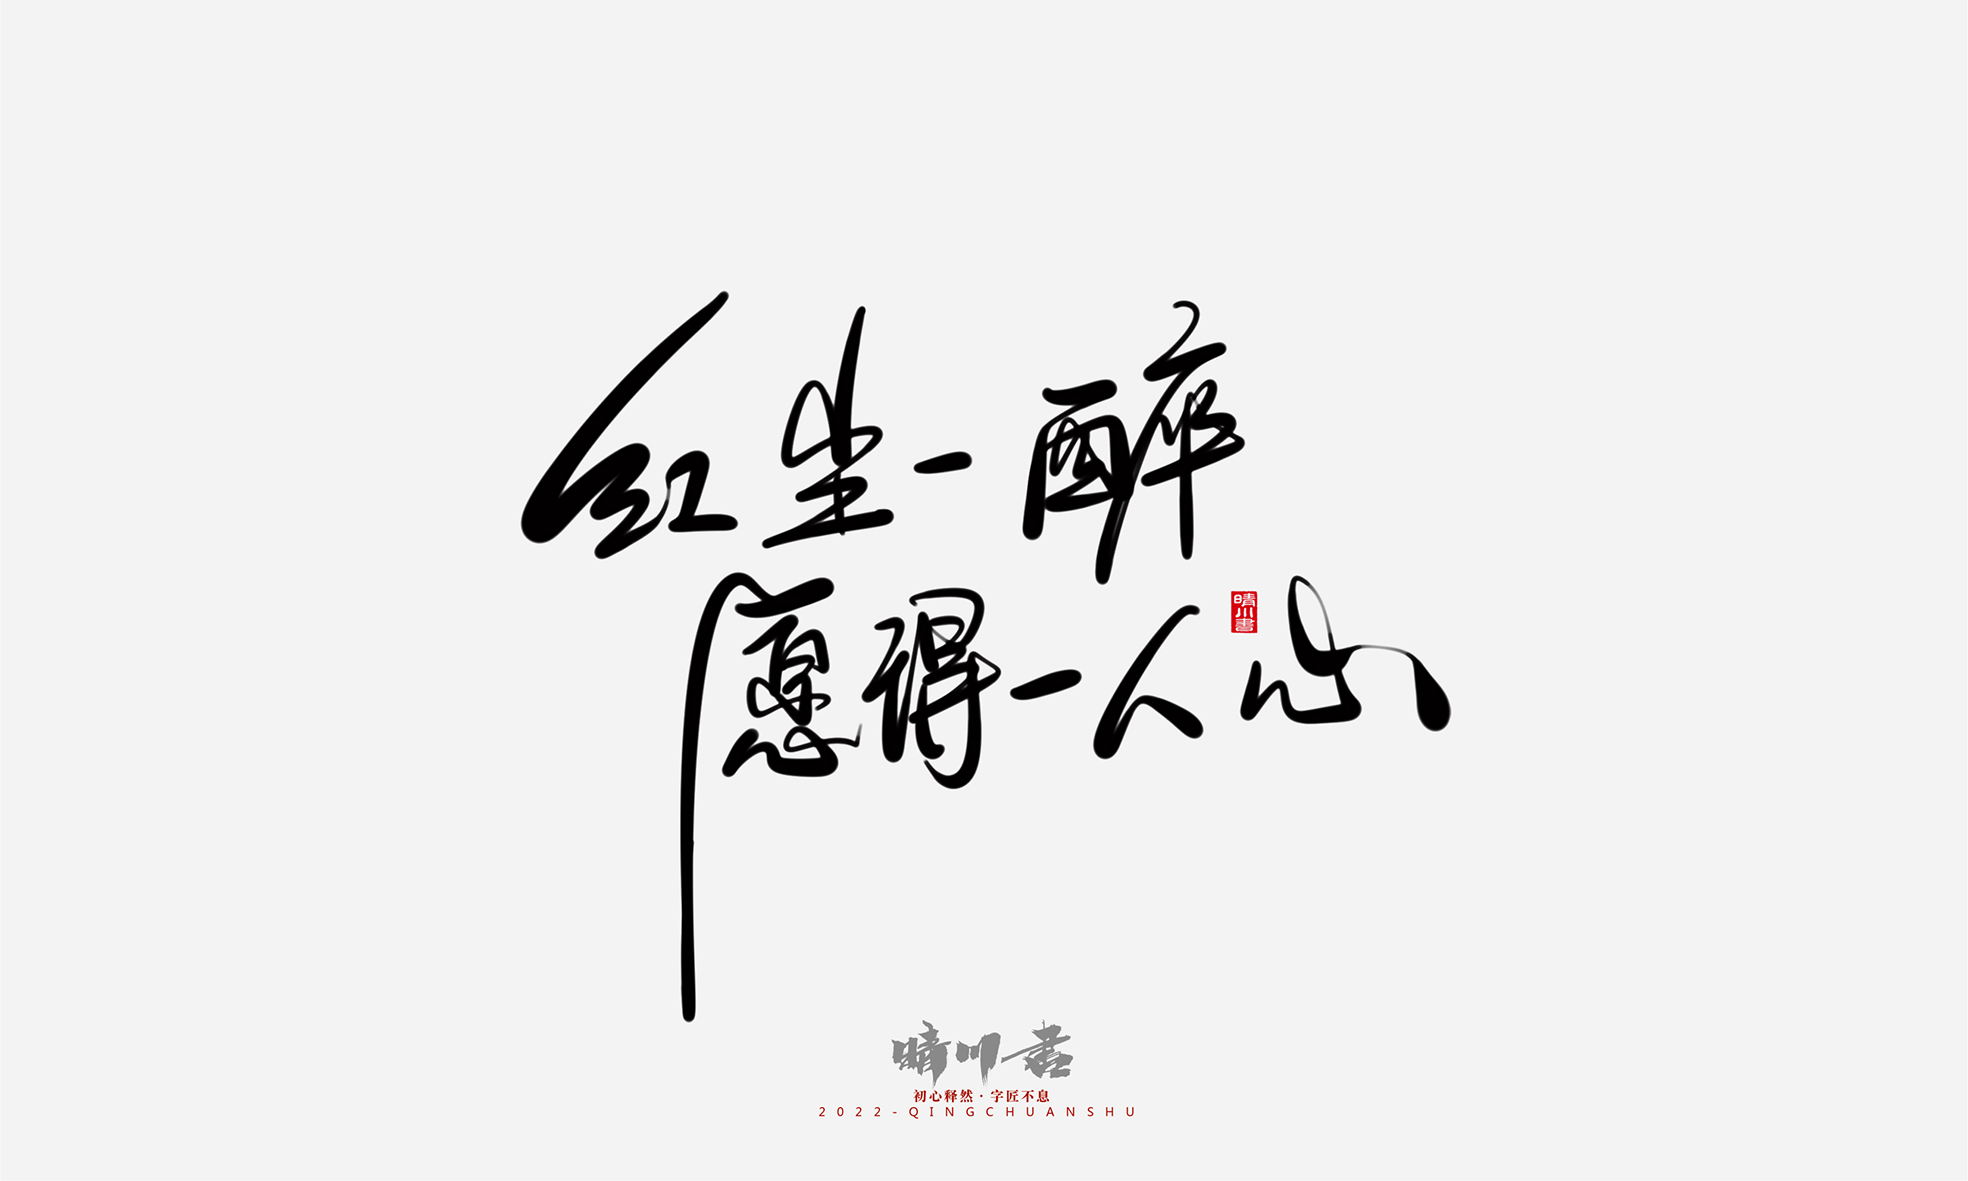 红尘一醉
愿得一人心
晴川書
晴川书
初心释然·字匠不息
2022-QINGCHUANSHU